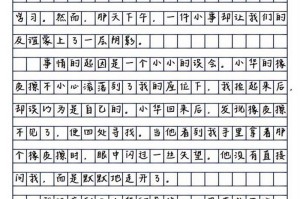 学习。然而，那天下午，一件小事却让我们的
友谊蒙上了一层阴影。
事情的起因是一个小小的误会。小华的橡
皮擦不小心滚落到了我的座位下，我捡起来后，
却误以为是自己的。小华回来后，发现橡皮擦
不见了，便四处寻找。当他看到我手里拿着那
个橡皮擦时，眼中闪过一丝失望。他没有直接
问我，而是默默地走开了。